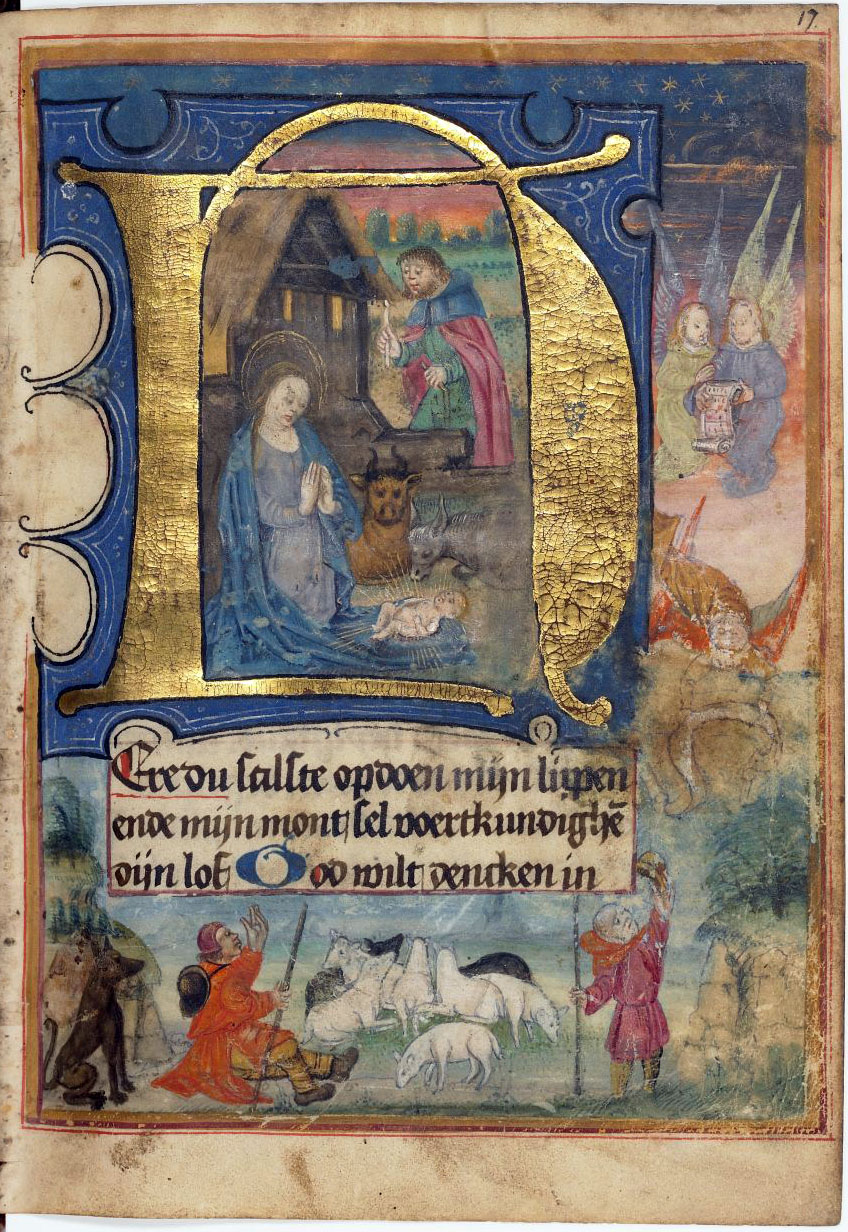 17.
H
Ere du salste opdoen mijn lippen
ende mijn mont sel voertkundighē
dijn lof God wilt dencken in